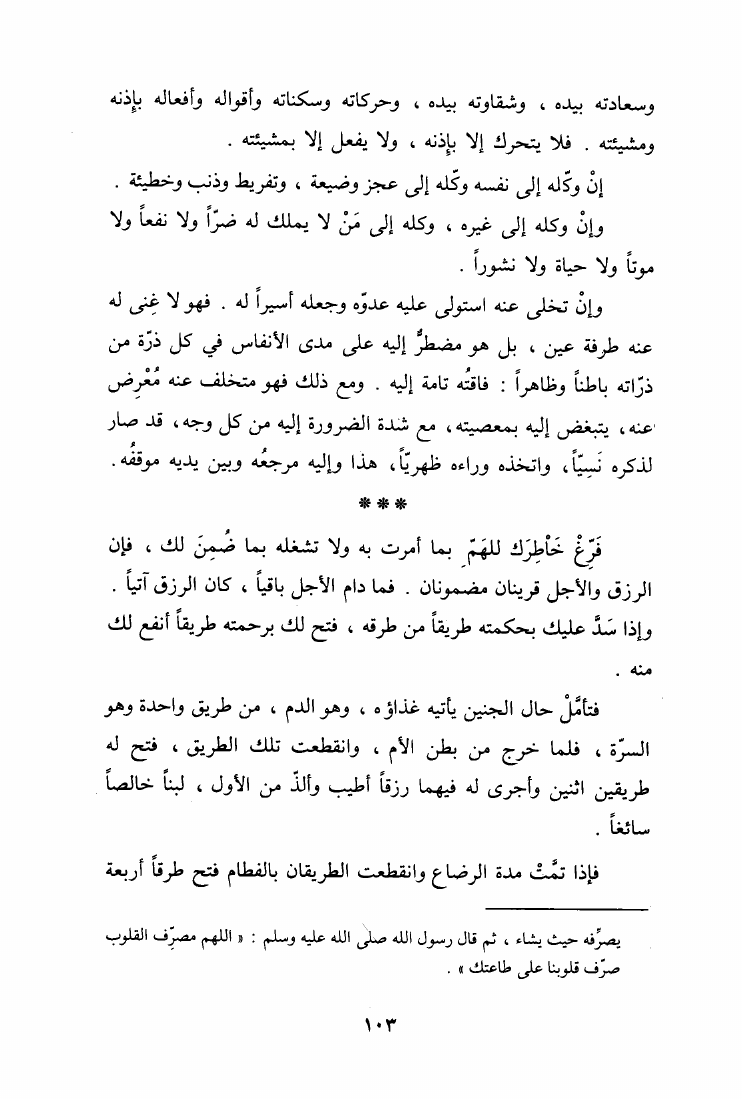 وسعادته بيده ، وشقاوته بيده ، وحركاته وسكناته وأقواله وأفعاله بإذنه
ومشيئته . فلا يتحرك إلا بإذنه ، ولا يفعل إلا بمشيئته .
إنْ وكّله إلى نفسه وكّله إلى عجز وضيعة ، وتفريط وذنب وخطيئة .
وإنْ وكله إلى غيره ، وكله إلى مَنْ لا يملك له ضرّاً ولا نفعاً ولا
موتاً ولا حياة ولا نشوراً .
وإنْ تخلى عنه استولى عليه عدوّه وجعله أسيراً له . فهو لا غِنى له
عنه طرفة عين ، بل هو مضطرٌّ إليه على مدى الأنفاس في كل ذرّة من
ذرّاته باطناً وظاهراً : فاقتُه تامة إليه . ومع ذلك فهو متخلف عنه مُعْرِض
عنه، يتبغض إليه بمعصيته، مع شدة الضرورة إليه من كل وجه، قد صار
لذكره نَسِيّاً، واتخذه وراءه ظهريّاً، هذا وإليه مرجعُه وبين يديه موقفُه.
***
فَرِّغْ خَاْطِرَك للهَمِّ بما أمرت به ولا تشغله بما ضُمِنَ لك ، فإن
الرزق والأجل قرينان مضمونان . فما دام الأجل باقياً ، كان الرزق آتياً .
وإذا سَدَّ عليك بحكمته طريقاً من طرقه ، فتح لك برحمته طريقاً أنفع لك
منه .
فتأمَّلْ حال الجنين يأتيه غذاؤه ، وهو الدم ، من طريق واحدة وهو
السرّة ، فلما خرج من بطن الأم ، وانقطعت تلك الطريق ، فتح له
طريقين اثنين وأجرى له فيهما رزقاً أطيب وألذّ من الأول ، لبناً خالصاً
سائغاً .
فإذا تمَّتْ مدة الرضاع وانقطعت الطريقان بالفطام فتح طرقاً أربعة
يصرِّفه حيث يشاء ، ثم قال رسول الله صلى الله عليه وسلم : « اللهم مصرِّف القلوب
صرّف قلوبنا على طاعتك » .
١٠٣